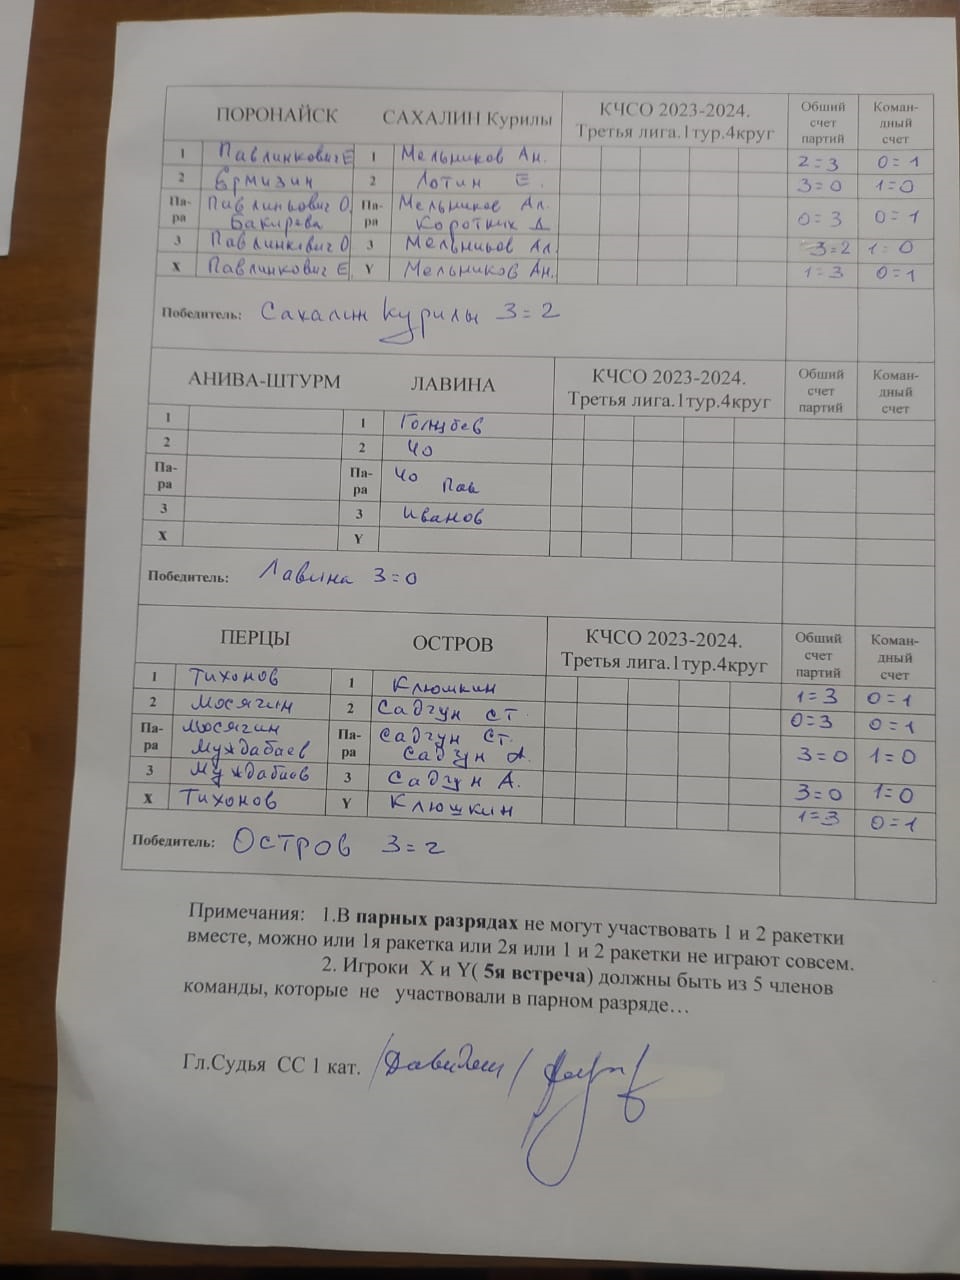 ПОРОНАЙСК САХАЛИН Курилы КЧСО 2023-2024. Третья лига.1тур.4круг Общий счет партий Коман-дный счет
1 Павлинкович Е 1 Мельников Ан. 2=3 0=1
2 Ермизин 2 Лотин Е. 3=0 1=0
Па-ра Павлинькович О. Бакирева Па-ра Мельников Ал. Коротких Д 0=3 0=1
3 Павлинкевич О 3 Мельников Ал. 3=2 1=0
X Павлинкович Е. Y Мельников Ан. 1=3 0=1
Победитель: Сахалин Курилы 3=2
АНИВА-ШТУРМ ЛАВИНА КЧСО 2023-2024. Третья лига.1тур.4круг Общий счет партий Коман-дный счет
1 1 Голубев
2 2 Чо
Па-ра Па-ра Чо Пак
3 3 Иванов
X Y
Победитель: Лавина 3=0
ПЕРЦЫ ОСТРОВ КЧСО 2023-2024. Третья лига.1тур.4круг Общий счет партий Коман-дный счет
1 Тихонов 1 Клюшкин 1=3 0=1
2 Мосягин 2 Садгун ст. 0=3 0=1
Па-ра Мосягин Муждабаев Па-ра Садгун Ст. Садгун А. 3=0 1=0
3 Муждабаев 3 Садгун А. 3=0 1=0
X Тихонов Y Клюшкин 1=3 0=1
Победитель: Остров 3=2
Примечания: 1.В парных разрядах не могут участвовать 1 и 2 ракетки
вместе, можно или 1я ракетка или 2я или 1 и 2 ракетки не играют совсем.
2. Игроки X и Y( 5я встреча) должны быть из 5 членов
команды, которые не участвовали в парном разряде…
Гл.Судья СС 1 кат.